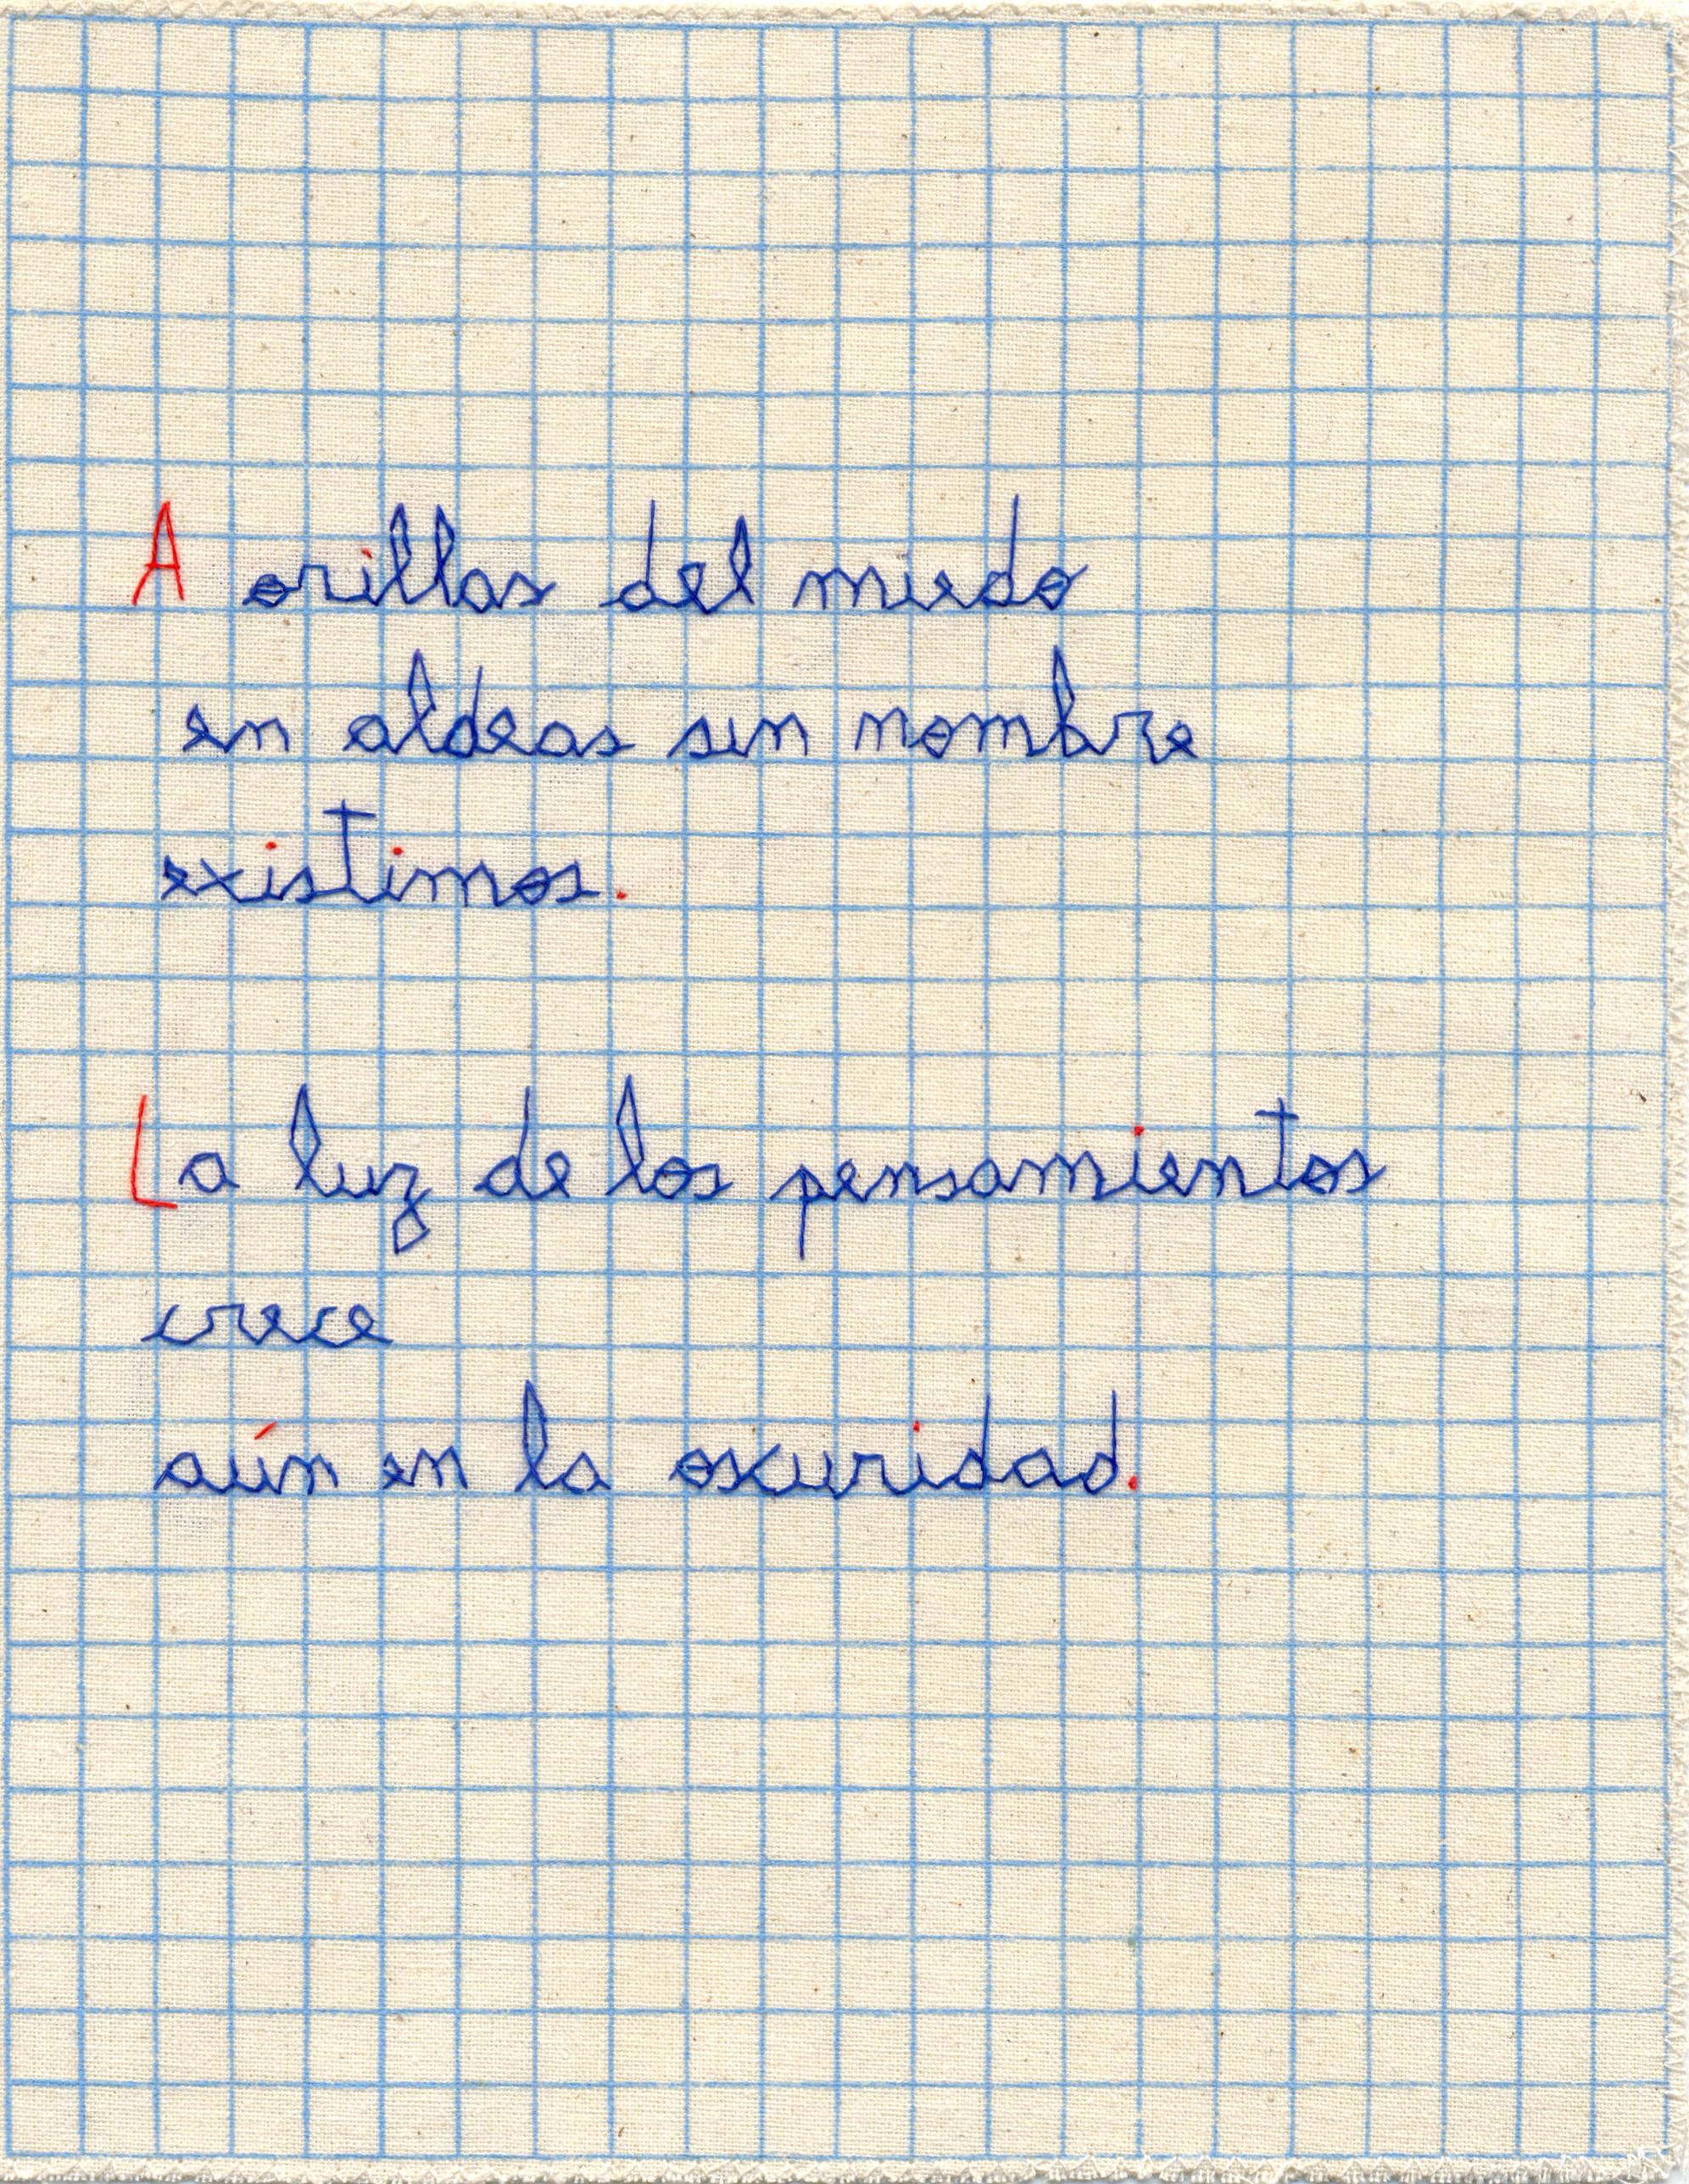 A orillas del miedo
en aldeas sin nombre
existimos.
La luz de los pensamientos
crece
aún en la oscuridad.